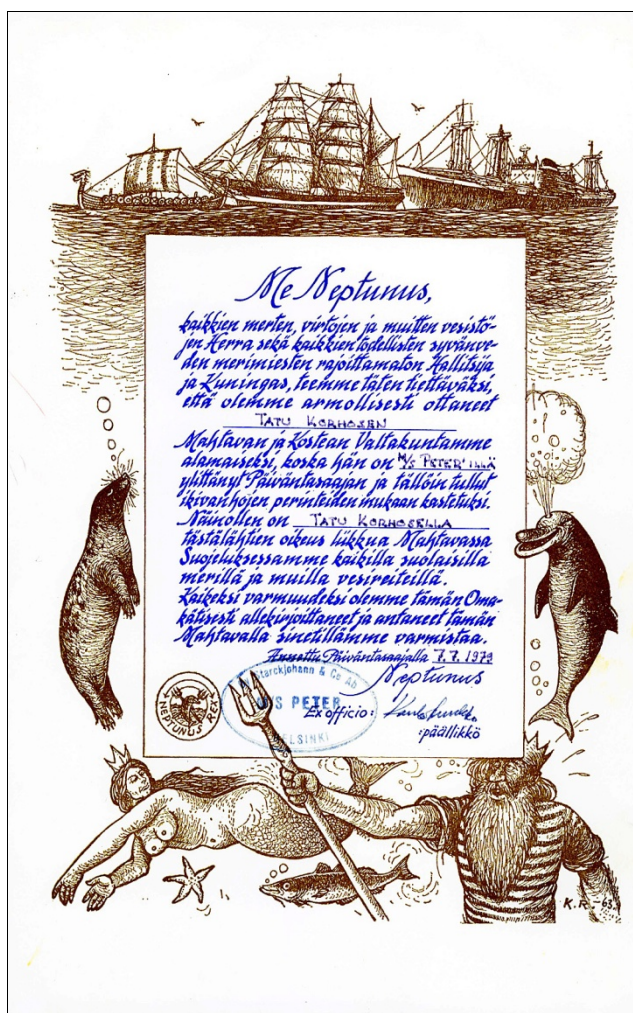 Me Neptunus,
kaikkien merten, virtojen ja muitten vesistö-
jen Herra sekä kaikkien todellisten syvänve-
den merimiesten rajoittamaton Hallitsija
ja Kuningas, teemme täten tiettäväksi,
että olemme armollisesti ottaneet
TATU KORHOSEN
Mahtavan ja Kostean Valtakuntamme
alamaiseksi, koska hän on M/S PETER'ILLÄ
ylittänyt Päiväntasaajan ja tällöin tullut
ikivanhojen perinteiden mukaan kastetuksi.
Näinollen on TATU KORHOSELLA
tästälähtien oikeus liikkua Mahtavassa
Suojeluksessamme kaikilla suolaisilla
merillä ja muilla vesireiteillä.
Kaikeksi varmuudeksi olemme tämän Oma-
kätisesti allekirjoittaneet ja antaneet tämän
Mahtavalla sinetillämme varmistaa.
Annettu Päiväntasaajalla 7.7. 1979
Neptunus
NEPTUNUS REX
Starckjohann & Co Ab
M/S PETER
HELSINKI
Ex officio:
:päällikkö
K.R. -63